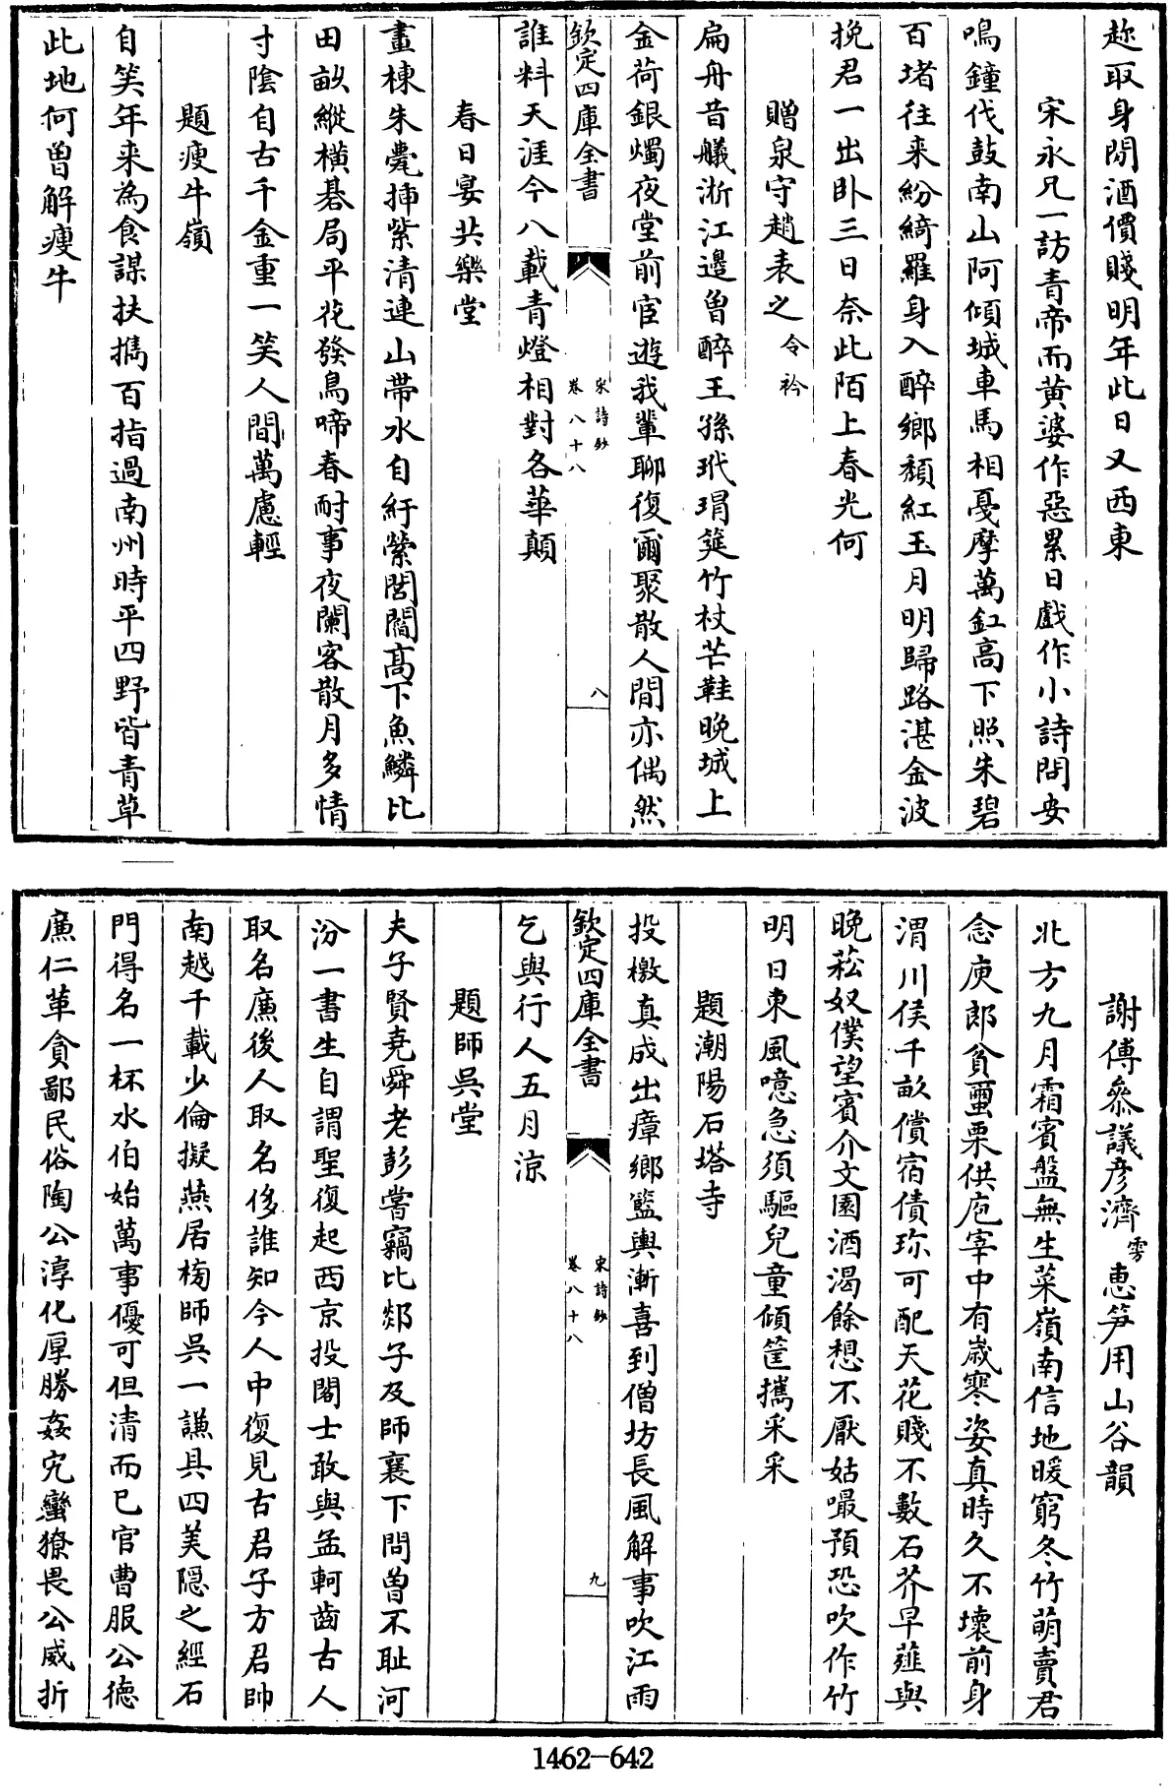 趂取身閒酒價賤明年此日又西東
宋永兄一訪青帝而黄婆作惡累日戲作小詩問安
鳴鐘伐鼓南山阿傾城車馬相戞摩萬釭高下照朱碧
百堵往来紛綺羅身入醉鄉頽紅玉月明歸路湛金波
挽君一出卧三日奈此陌上春光何
贈泉守趙表之令衿
扁舟昔艤浙江邊曽醉王孫玳瑁筵竹杖芒鞋晚城上
金荷銀燭夜堂前宦遊我輩聊復爾聚散人間亦偶然
欽定四庫全書 宋詩鈔 卷八十八 八
誰料天涯今八載青燈相對各華顛
春日宴共樂堂
畫棟朱甍挿紫清連山帶水自紆縈閭閻高下魚鱗比
田畝縱横棊局平花發鳥啼春耐事夜闌客散月多情
寸陰自古千金重一笑人間萬慮輕
題瘦牛嶺
自笑年来為食謀扶擕百指過南州時平四野皆青草
此地何曽解瘦牛
謝傅叅議彦濟雱惠笋用山谷韻
北方九月霜賓盤無生菜嶺南信地暖窮冬竹萌賣君
念庾郎貧蠒栗供庖宰中有歳寒姿真時久不壊前身
渭川侯千畝償宿債珎可配天花賤不數石芥早薤與
晚菘奴僕望賓介文園酒渴餘想不厭姑嘬預恐吹作竹
明日東風噫急須驅兒童傾筐擕采采
題潮陽石塔寺
投檄真成出瘴鄉籃輿漸喜到僧坊長風解事吹江雨
欽定四庫全書 宋詩鈔 卷八十八 九
乞與行人五月涼
題師吳堂
夫子賢堯舜老彭嘗竊比郯子及師襄下問曽不耻河
汾一書生自謂聖復起西京投閣士敢與孟軻齒古人
取名㢘後人取名侈誰知今人中復見古君子方君帥
南越千載少倫擬燕居榜師吳一謙具四美隠之經石
門得名一杯水伯始萬事優可但清而已官曹服公德
㢘仁革貪鄙民俗陶公淳化厚勝姦宄蠻獠畏公威折
1462-642